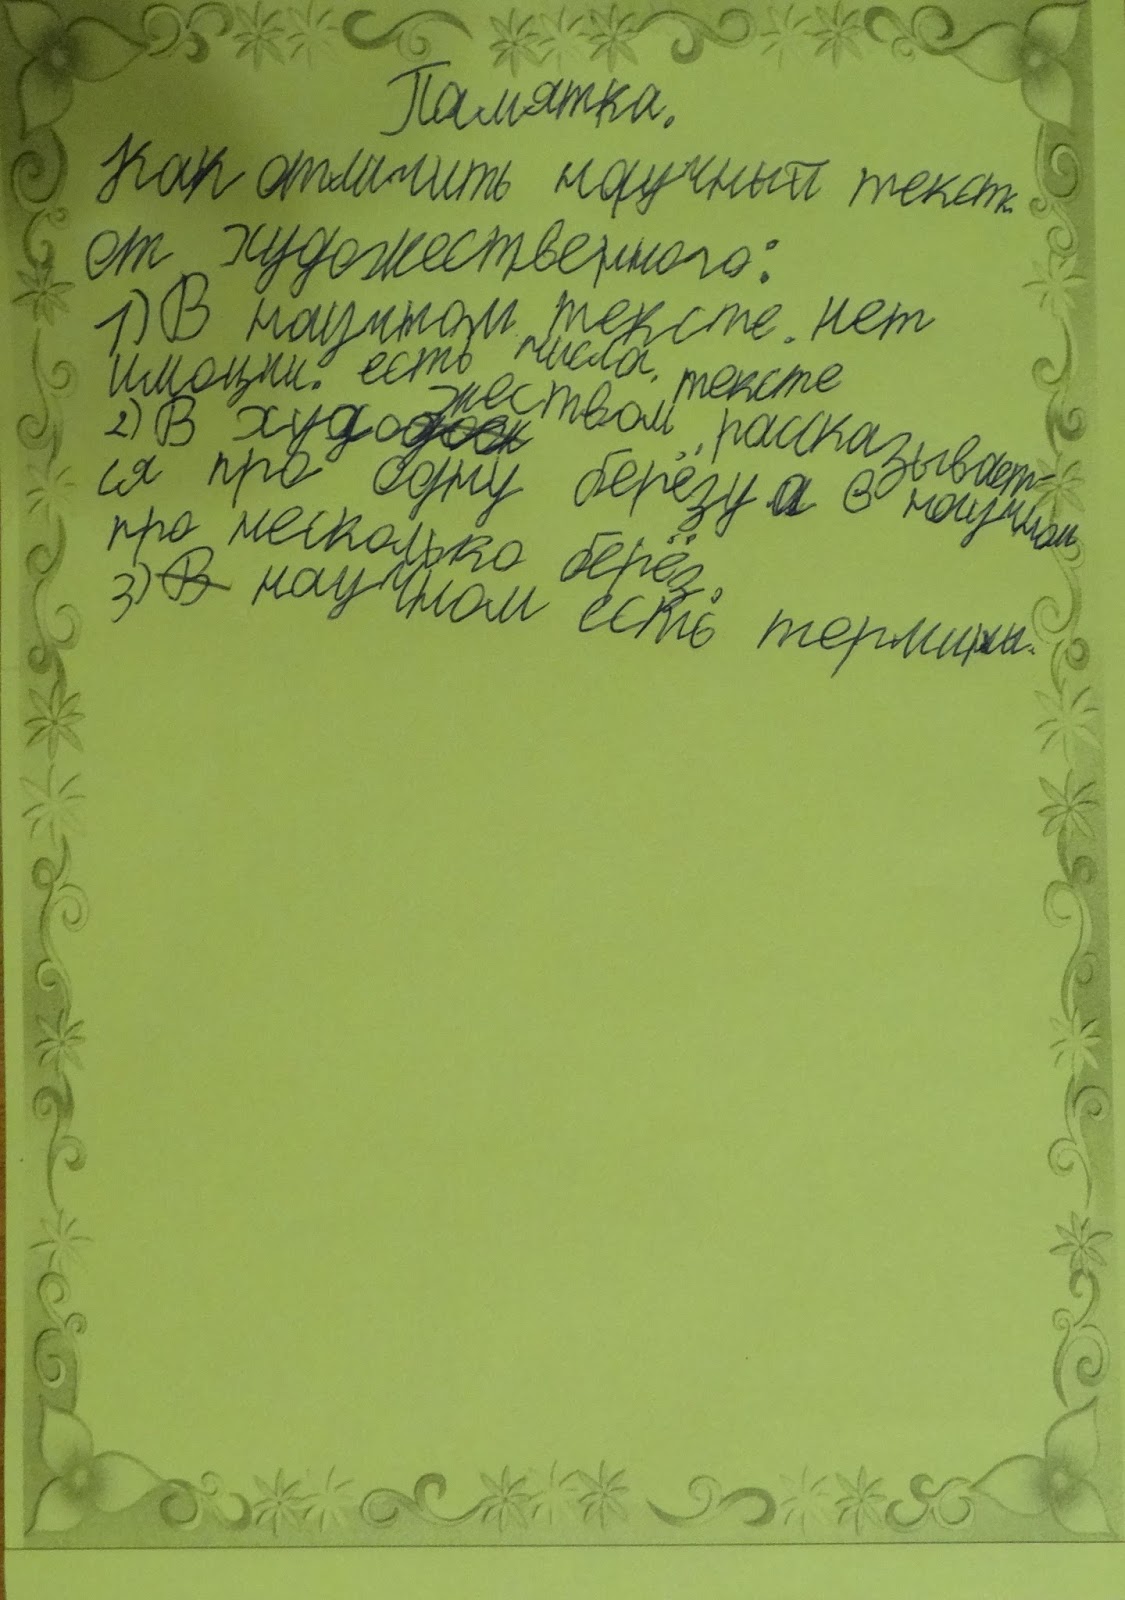 Памятка.
Как отличить научный текст
от художественного:
1) В научном тексте. нет
имоции. есть числа.
2) В худо жеством тексте рассказывает-
ся про одну берёзу а в научном
про несколько берёз.
3) В научном есть термины.